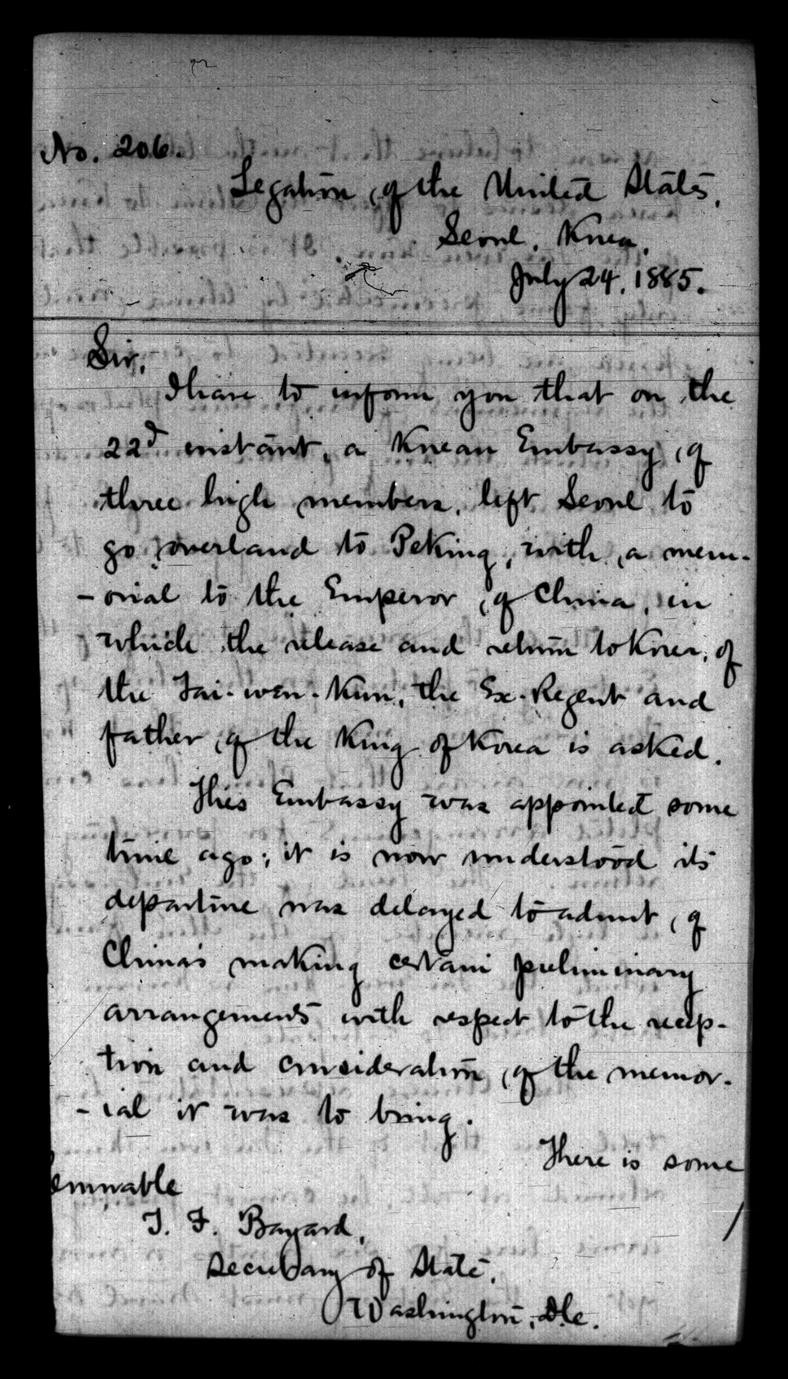 No. 206.
Legation of the United States,
Seoul, Korea,
July 24, 1885.
Sir,
I have to inform you that on the
22d instant, a Korean Embassy, of
three high members, left Seoul to
go overland to Peking, with a mem-
-orial to the Emperor of China, in
which the release and return to Korea, of
the Tai-wen-Kun, the Ex-Regent and
father of the King of Korea is asked.
This Embassy was appointed some
time ago; it is now understood its
departure was delayed to admit, of
China's making certain preliminary
arrangements with respect to the recep-
tion and consideration of the memor-
-ial it was to bring.
There is some
T. F. Bayard,
Secretary of State,
Washington, D.C.